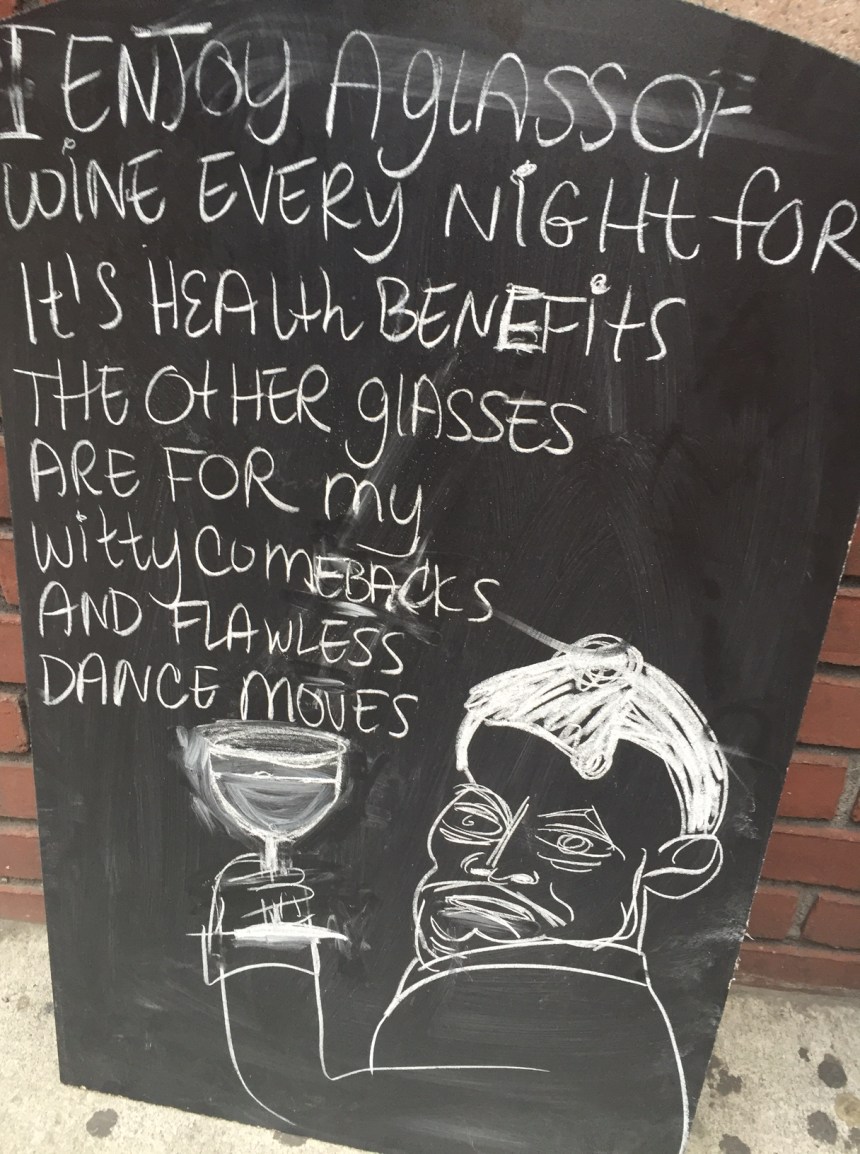 I ENJOY A glASS OF
WiNE EVERY NiGHt fOR
It'S HEAlth BENEFitS
THE OtHER glASSES
ARE FOR my
wittycomEBACKS
AND FLAWLESS
DANCE MOVES